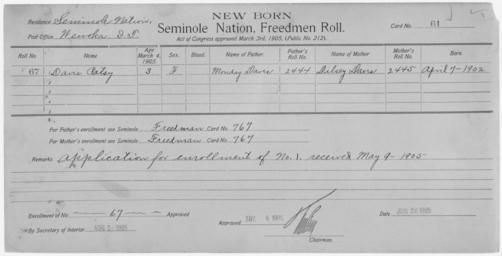 NEW BORN
Residence Seminole Nation,
Seminole Nation, Freedmen Roll.
Card No. 61
Post Office Wewoka, I.T.
Act of Congress approved March 3rd, 1905, (Public No. 212).
Roll No. Name Age March 4, 1905. Sex. Blood. Name of Father Father's Roll No. Name of Mother Mother's Roll No. Born
67 Davis Patsy 3 F Monday Davis 2444 Dilsey Davis 2445 April 7-1902
For Father's enrollment see Seminole Freedman Card No. 767
For Mother's enrollment see Seminole Freedman Card No. 767
Remarks Application for enrollment of No. 1, received May 9-1905
Enrollment of No 67 Approved
Approved 1905
Date 1905
by Secretary of Interior 1905
Chairman.